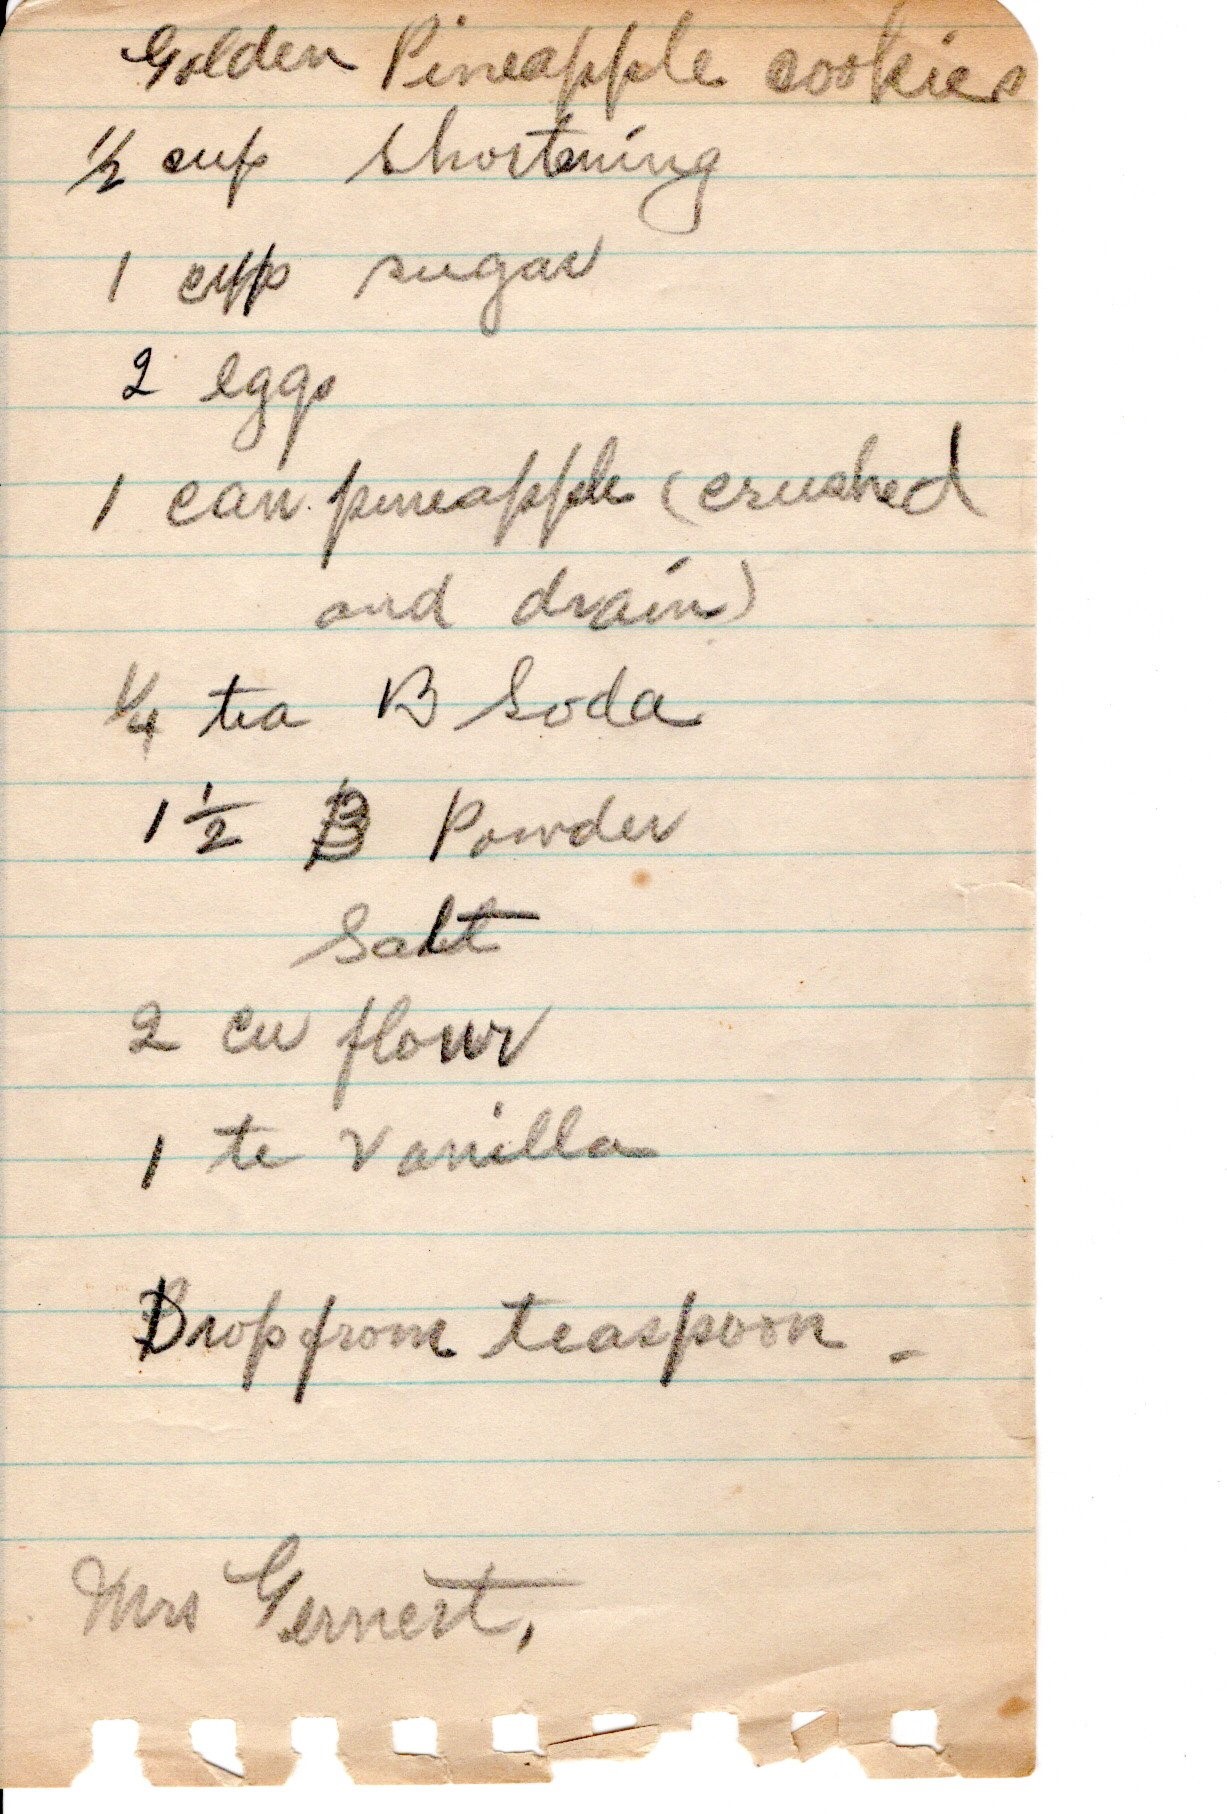 Golden Pineapple cookies
1/2 cup shortening
1 cup sugar
2 eggs
1 can pineapple (crushed
and drain)
1/4 tea B Soda
1 1/2 B Powder
Salt
2 cu flour
1 te Vanilla
Drop from teaspoon -
Mrs Gernert,